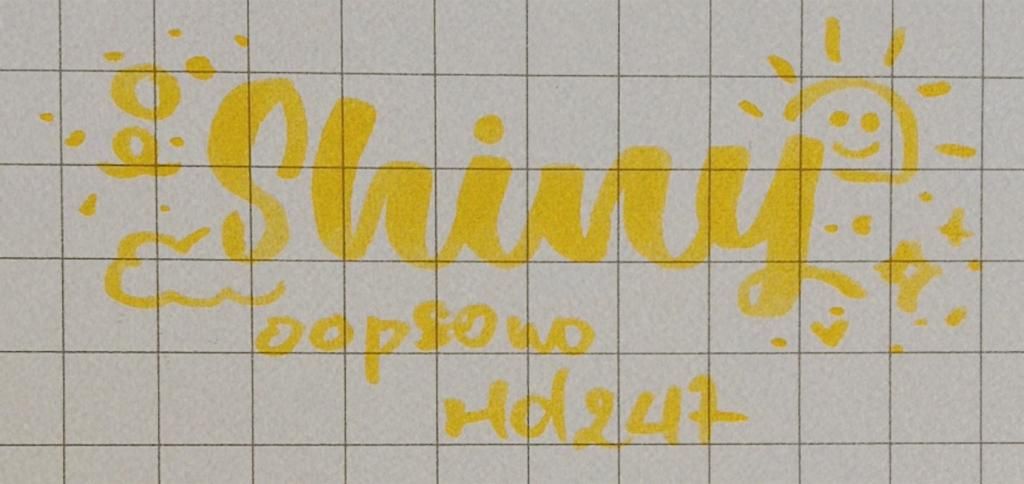 Shiny
oopsowo
Hd247